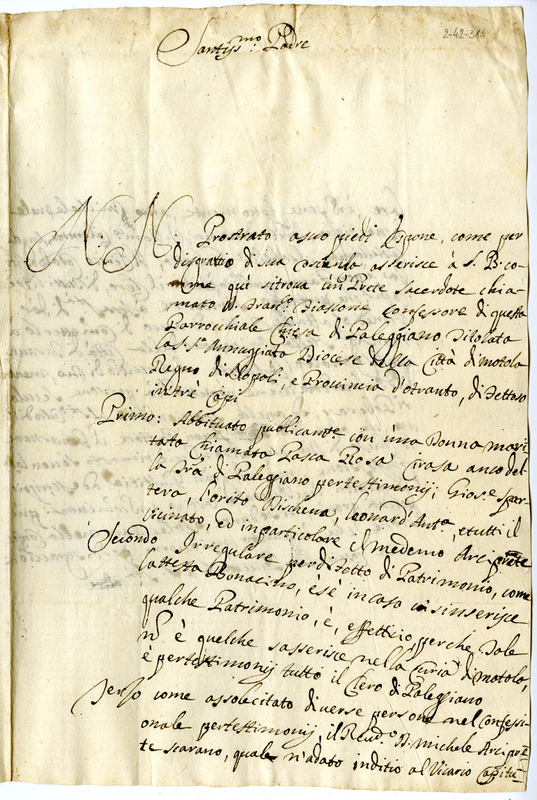 2-42-314
Santiss.mo Padre
N. N. Prostrato a suo piedi Espone, come per
disgratio di sua coscienza asserisce à S. B. co-
mme quì si trova un Prete sacerdote chia-
mato D. Fran.co Biasone Confessore di questa
Parrocchiale Chiesa di Paleggiano Titolata
la SS.a Annuggiata Diocese della Città di Motola
Regno di Napoli, e Provincia d'otranto, difettoso
in trè Capi
Primo: Abbituato publicam.te con una Donna mari
tata Chiamata Pasca Rosa anco del
la Trà di Paleggiano per testimonij; Gios.e
Leonard'Ant.o, e tutti il
vicinato, ed in particolare il medemo Arciprete
Secondo Irregulare per difetto di Patrimonio, come
l'attesta Bonacino, è se in caso si inserisce
qualche Patrimonio, è, effetticio, perche Tale
n. è quelche s'asserisce nella Curia di Motola,
è per testimonij tutto il Clero di Paleggiano
Terzo come assolecitato diverse persone nel Confessi-
onale per testimonij, il Reu.do D. Michele Arcipre-
te Scarano, quale n'adato inditio al Vicario Capitu-